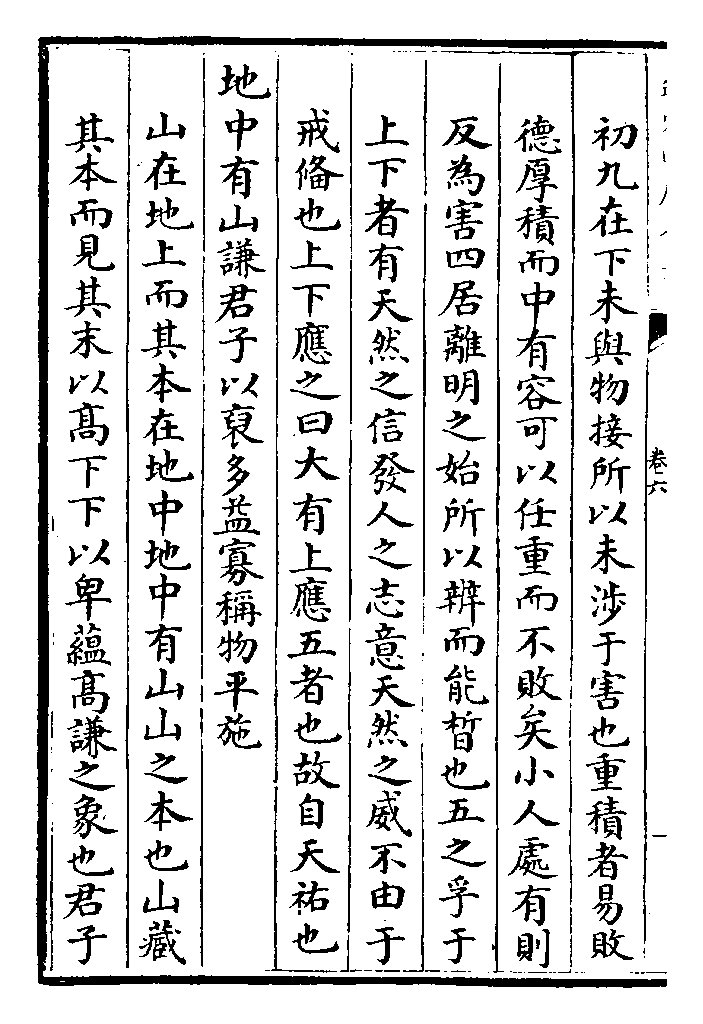 卷六
初九在下未與物接所以未涉于害也重積者易敗
德厚積而中有容可以任重而不敗矣小人處有則
反為害四居離明之始所以辨而能晳也五之孚于
上下者有天然之信發人之志意天然之威不由于
戒備也上下應之曰大有上應五者也故自天祐也
地中有山謙君子以裒多益寡稱物平施
山在地上而其本在地中地中有山山之本也山藏
其本而見其末以髙下下以卑蘊髙謙之象也君子